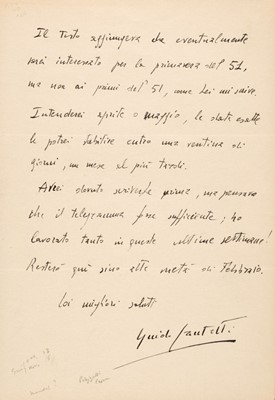 Il Testo aggiungeva che eventualmente
sarei interessato per la primavera del 52,
ma non ai primi del '51, come Lei mi scrive.
Intenderei aprile o maggio, le date esatte
le potrei stabilire entro una ventina di
giorni, un mese al più tardi.
Avrei dovuto scriverle prima, ma pensavo
che il telegramma fosse sufficiente; ho
lavorato tanto in queste ultime settimane!
Resterò quì sino alla metà di Febbraio.
Coi migliori saluti
Guido Cantelli